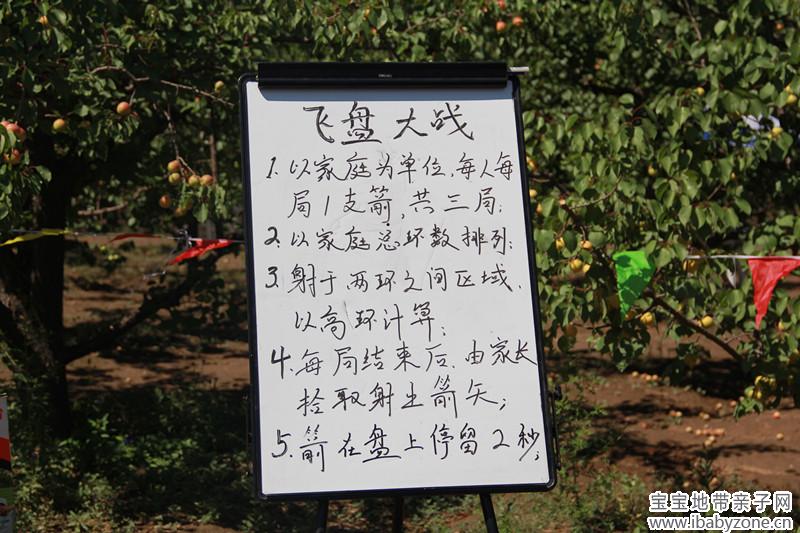 飞盘大战
1. 以家庭为单位,每人每
局1支箭,共三局;
2. 以家庭总环数排列;
3. 射于两环之间区域,
以高环计算;
4. 每局结束后,由家长
拾取射出箭矢;
5. 箭在盘上停留2秒;
宝宝地带亲子网
www.ibabyzone.cn